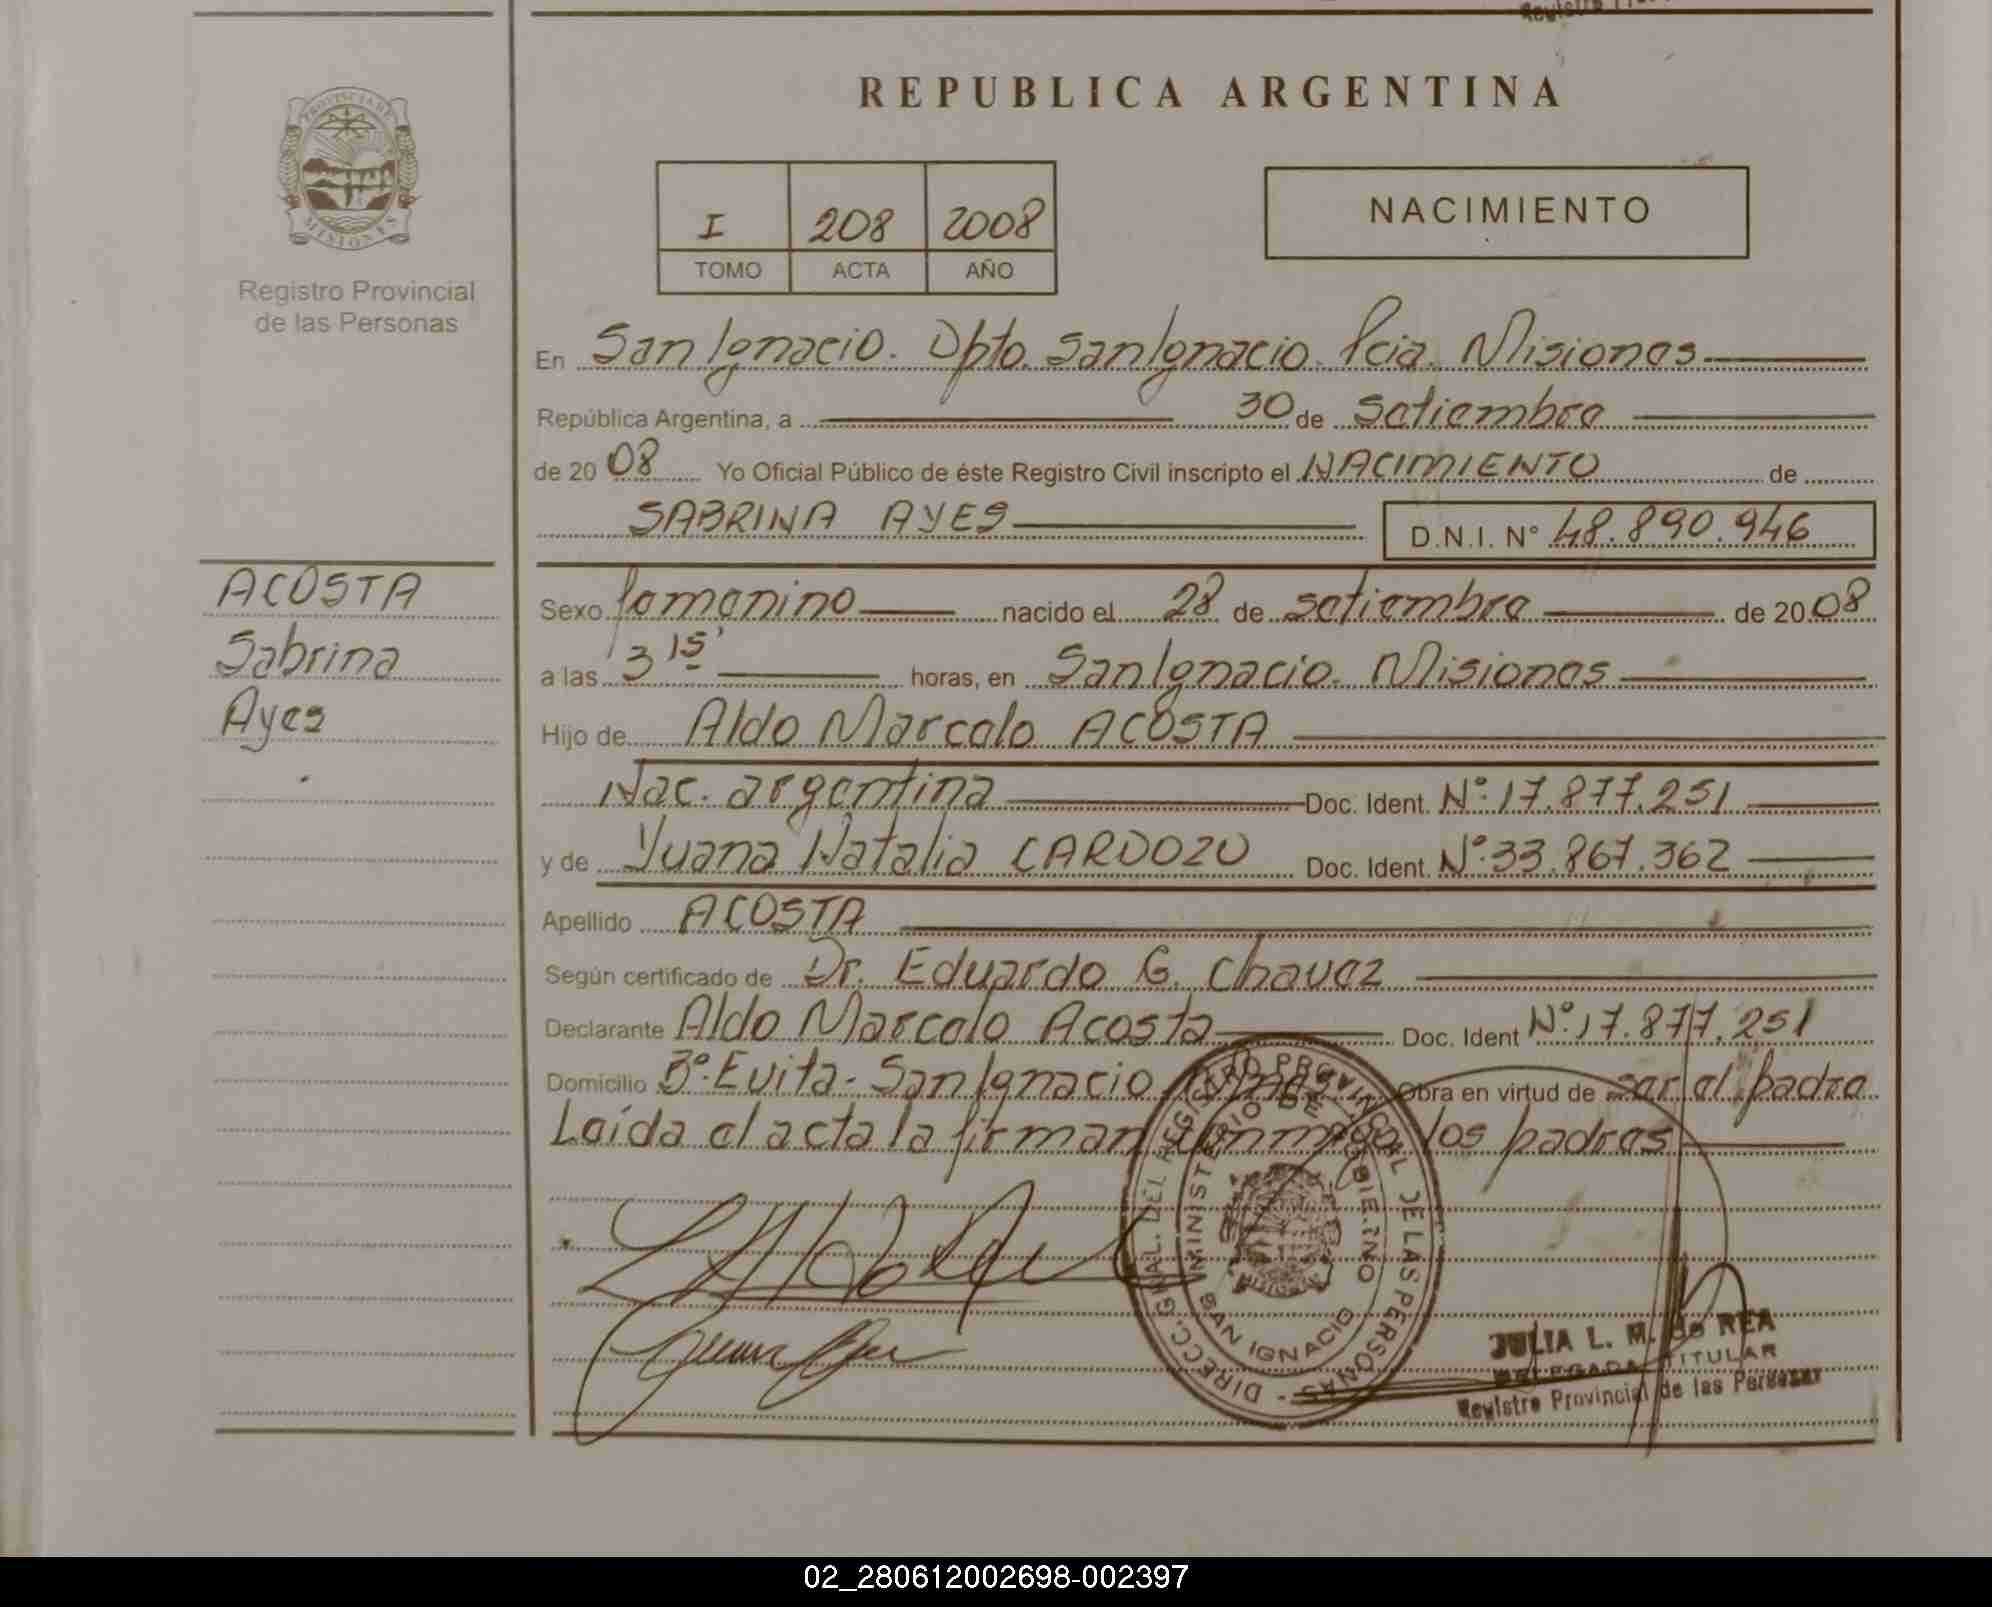 REPUBLICA ARGENTINA
PROVINCIA DE
MISIONES
Registro Provincial
de las Personas
I 208 2008
TOMO ACTA AÑO
NACIMIENTO
En San Ignacio. Dpto. San Ignacio. Pcia. Misiones
República Argentina, a 30 de Setiembre
de 20 08 Yo Oficial Público de éste Registro Civil inscripto el NACIMIENTO de
SABRINA AYES D.N.I. N° 48.890.946
ACOSTA
Sabrina
Ayes
Sexo femenino nacido el 28 de setiembre de 20 08
a las 3 15' horas, en San Ignacio. Misiones
Hijo de Aldo Marcelo ACOSTA
Nac. argentina Doc. Ident. N°.17.877.251
y de Yuana Natalia CARDOZO Doc. Ident. N°.33.867.362
Apellido ACOSTA
Según certificado de Dr. Eduardo G. Chavez
Declarante Aldo Marcelo Acosta Doc. Ident N°.17.877.251
Domicilio B°. Evita - San Ignacio Obra en virtud de ser el padre
Leída el acta la firman los padres
DIRECC. GRAL. DEL REGISTRO PROVINCIAL DE LAS PERSONAS -
MINISTERIO DE GOBIERNO
SAN IGNACIO
JULIA L. M. de REA
DELEGADA TITULAR
Registro Provincial de las Personas
02_280612002698-002397